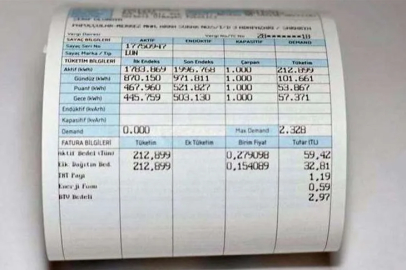 SAYAÇ BİLGİLERİ AKTİF ENDÜKTİF KAPASİTİF DEMAND
Sayaç Seri No 17750947
Sayaç Marka / Tip LUN
TÜKETİM BİLGİLERİ İlk Endeks Son Endeks Çarpan Tüketim
Aktif (kWh) 1783.869 1996.768 1.000 212.899
Gündüz (kWh) 870.150 971.811 1.000 101.661
Puant (kWh) 467.960 521.827 1.000 53.867
Gece (kWh) 445.759 503.130 1.000 57.371
Endüktif (kvArh)
Kapasitif (kvArh)
Demand 0.000 Max Demand 2.328
FATURA BİLGİLERİ Tüketim Ek Tüketim Birim Fiyat Tutar (TL)
Aktif Bedel (Tüm) 212,899 0,279098 59,42
Elk Dağıtım Bed. 212,899 0,154089 32,81
TRT Payı 1,19
Enerji Fonu 0,59
BTV Bedeli 2,97